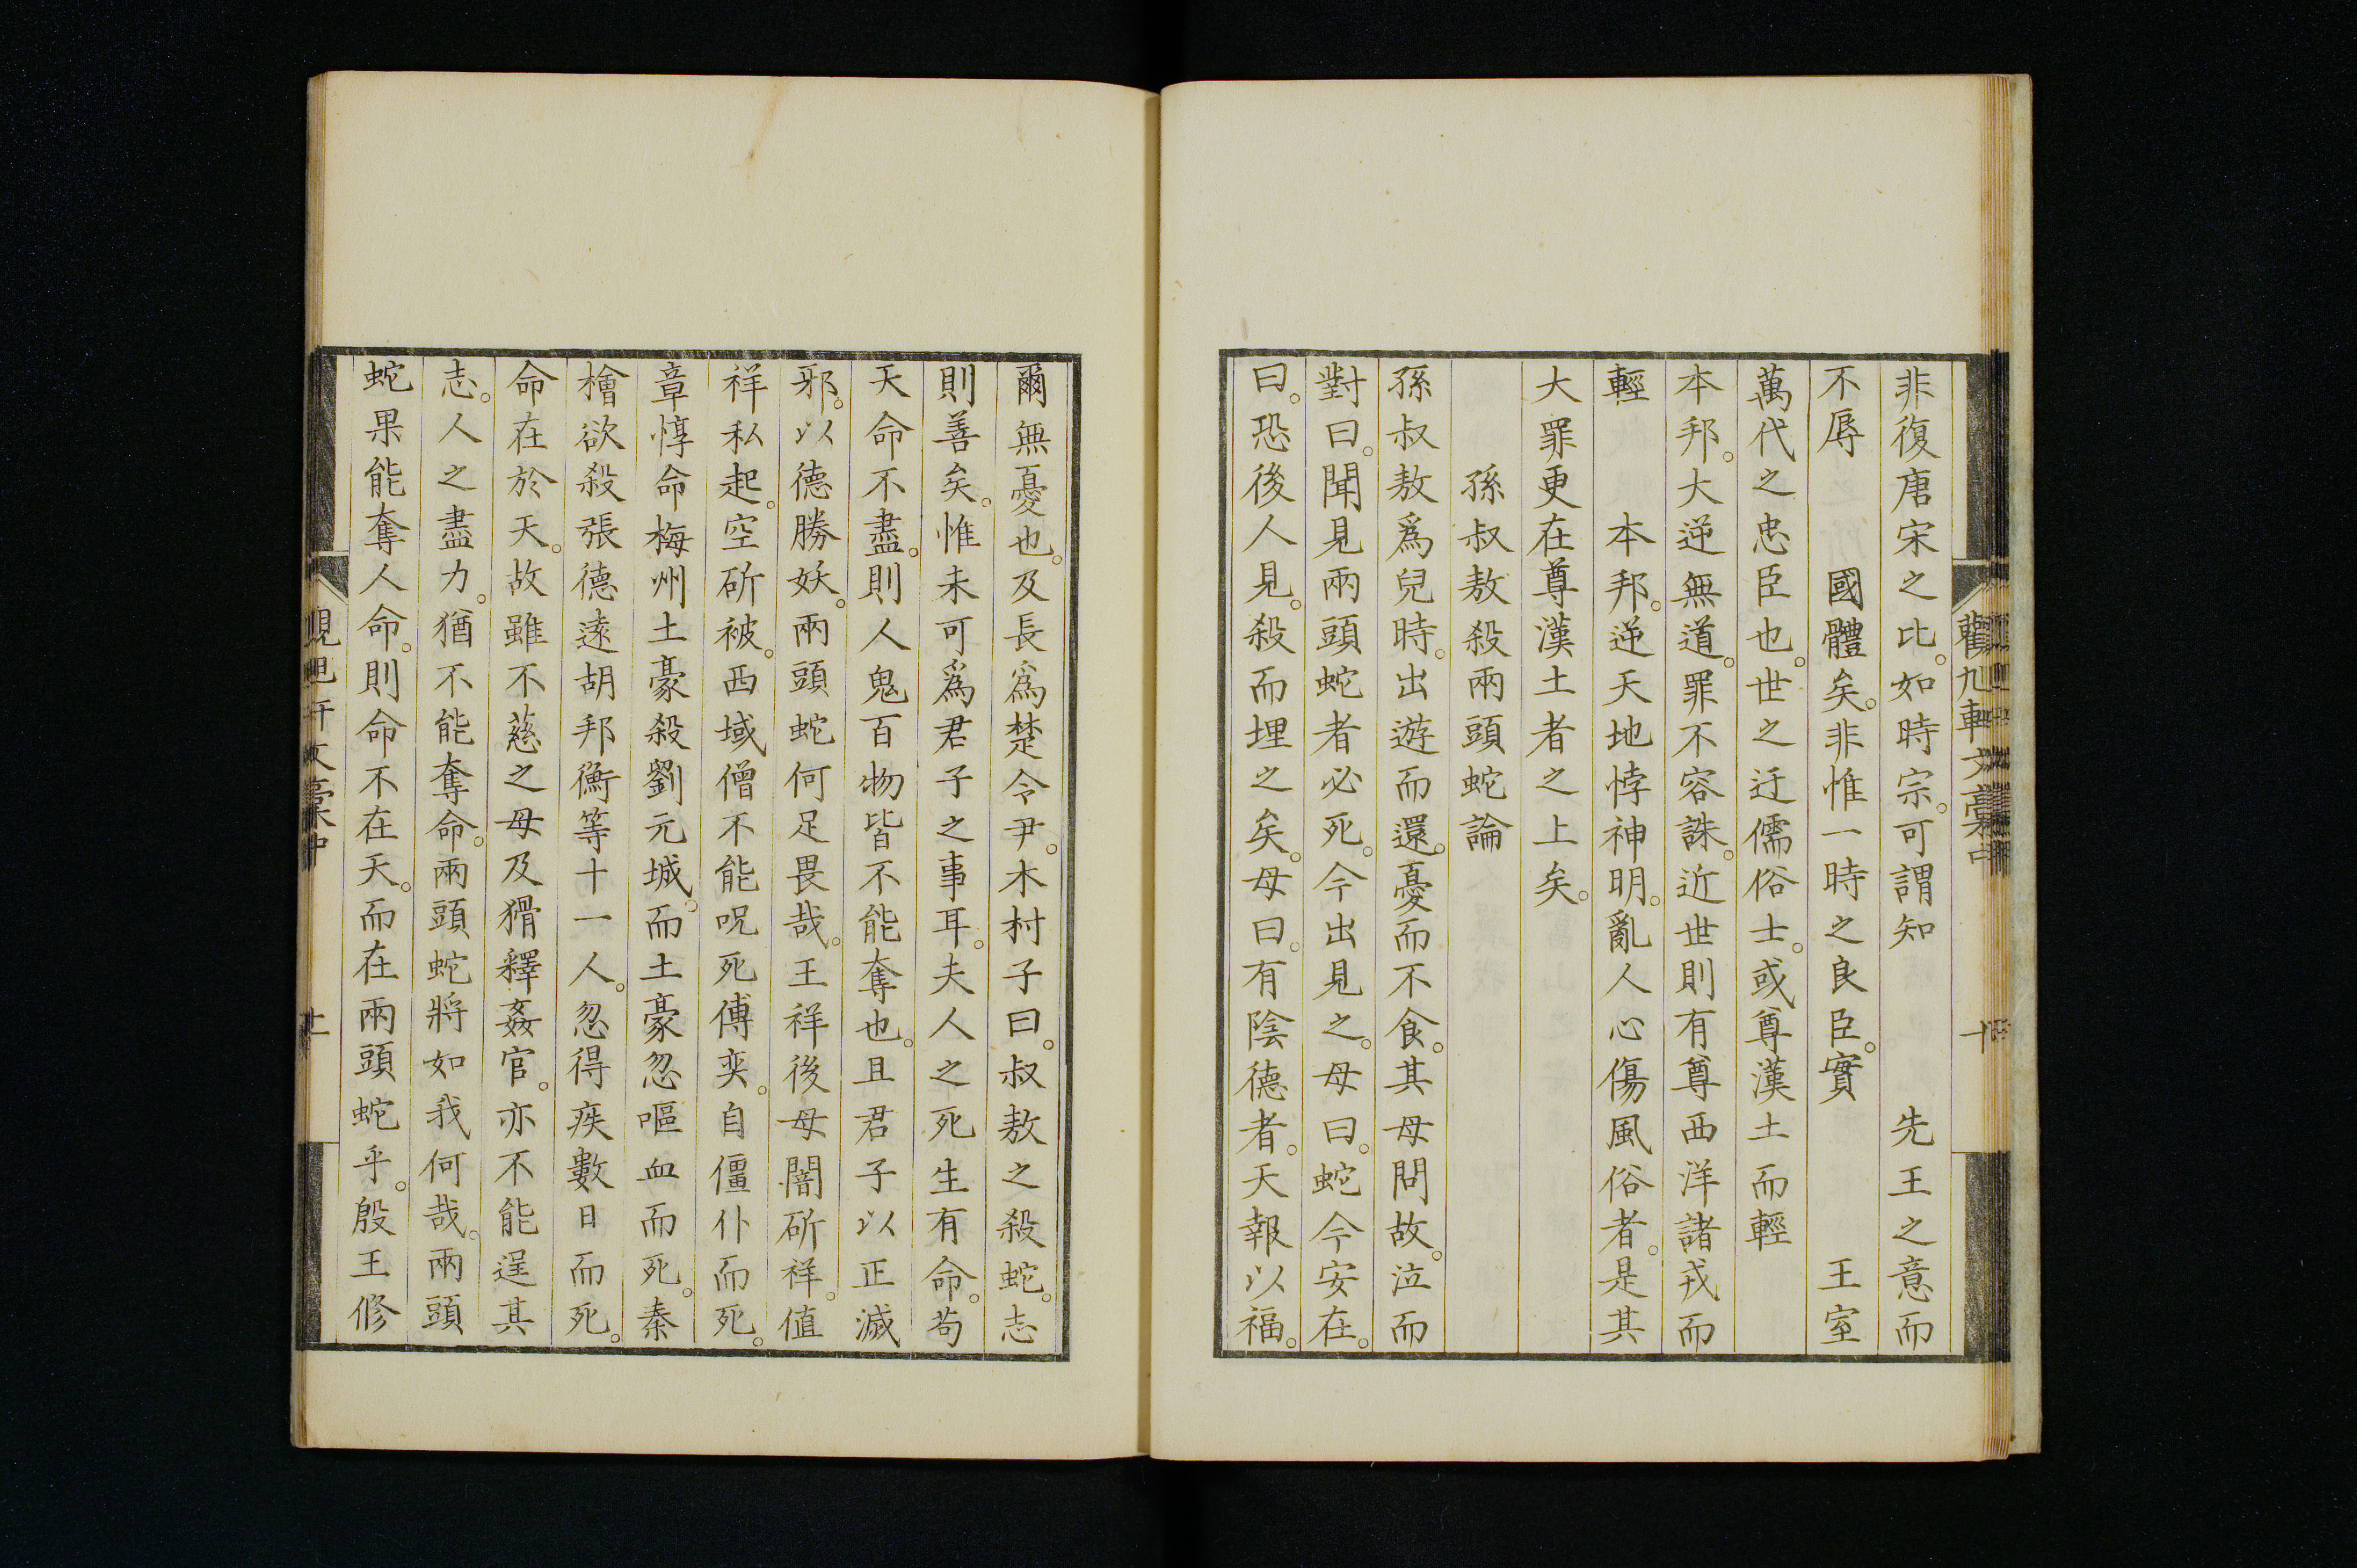 非復唐宋之比。如時宗。可謂知　先王之意而
不辱　國體矣。非惟一時之良臣。實　王室
萬代之忠臣也。世之迂儒俗士。或尊漢土而輕
本邦。大逆無道。罪不容誅。近世則有尊西洋諸戎而
輕　本邦。逆天地悖神明。亂人心傷風俗者。是其
大罪更在尊漢土者之上矣。
孫叔敖殺兩頭蛇論
孫叔敖爲兒時。出遊而還。憂而不食。其母問故。泣而
對曰。聞見兩頭蛇者必死。今出見之。母曰。蛇今安在。
曰。恐後人見。殺而埋之矣。母曰。有陰德者。天報以福。
爾無憂也。及長爲楚令尹。木村子曰。叔敖之殺蛇。志
則善矣。惟未可爲君子之事耳。夫人之死生有命。苟
天命不盡。則人鬼百物皆不能奪也。且君子以正滅
邪。以德勝妖。兩頭蛇何足畏哉。王祥後母闇斫祥。值
祥私起。空斫被。西域僧不能呪死傅奕。自僵仆而死。
章惇命梅州土豪殺劉元城。而土豪忽嘔血而死。秦
檜欲殺張德遠胡邦衡等十一人。忽得疾數日而死。
命在於天。故雖不慈之母及猾釋姦官。亦不能逞其
志。人之盡力。猶不能奪命。兩頭蛇將如我何哉。兩頭
蛇果能奪人命。則命不在天。而在兩頭蛇乎。殷王修
文稾中
十